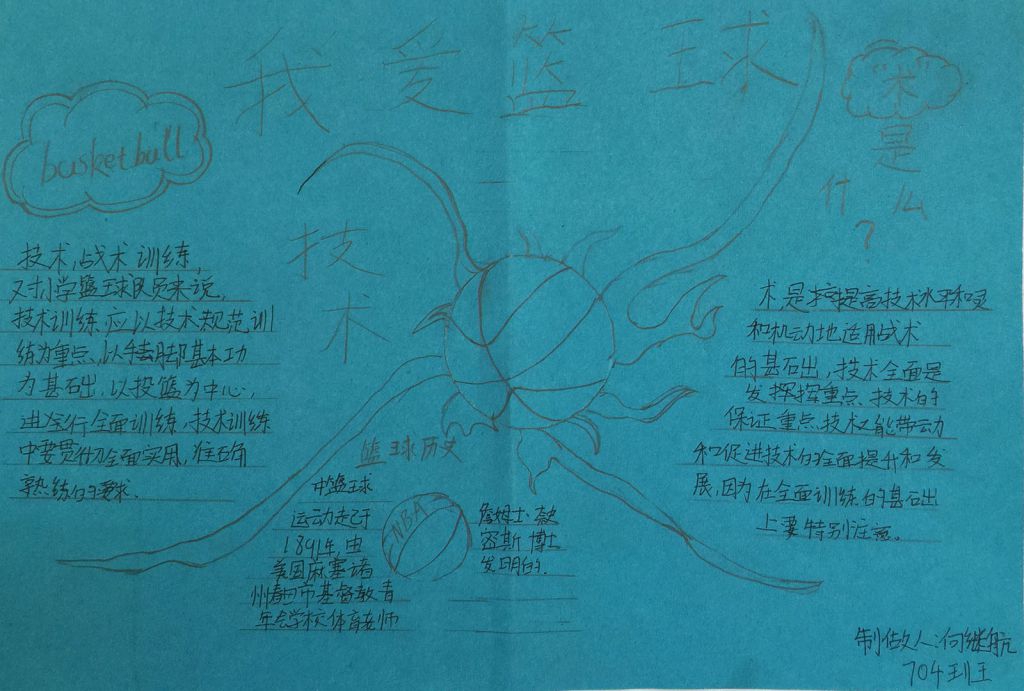 我爱篮球
basketball
技术
技术,战术训练,
对小学篮球队员来说,
技术训练应以技术规范训
练为重点、以手和脚基本功
为基础,以投篮为中心,
进行全面训练,技术训练
中要贯彻全面实用,准确
熟练的要求.
篮球历史
篮球
运动起于
1891年,由
美国麻塞诸
州春田市基督教青
年会学校体育老师
NBA
詹姆士·奈
密斯博士
发明的.
术
是
什么
?
术,是提高技术水平和灵
和机动地运用战术
的基础,技术全面是
发挥挥重点、技术的
保证重点、技术又能带动
和促进技术的全面提升和发
展,因为在全面训练的基础
上要特别注意。
制做人:向继航
704班